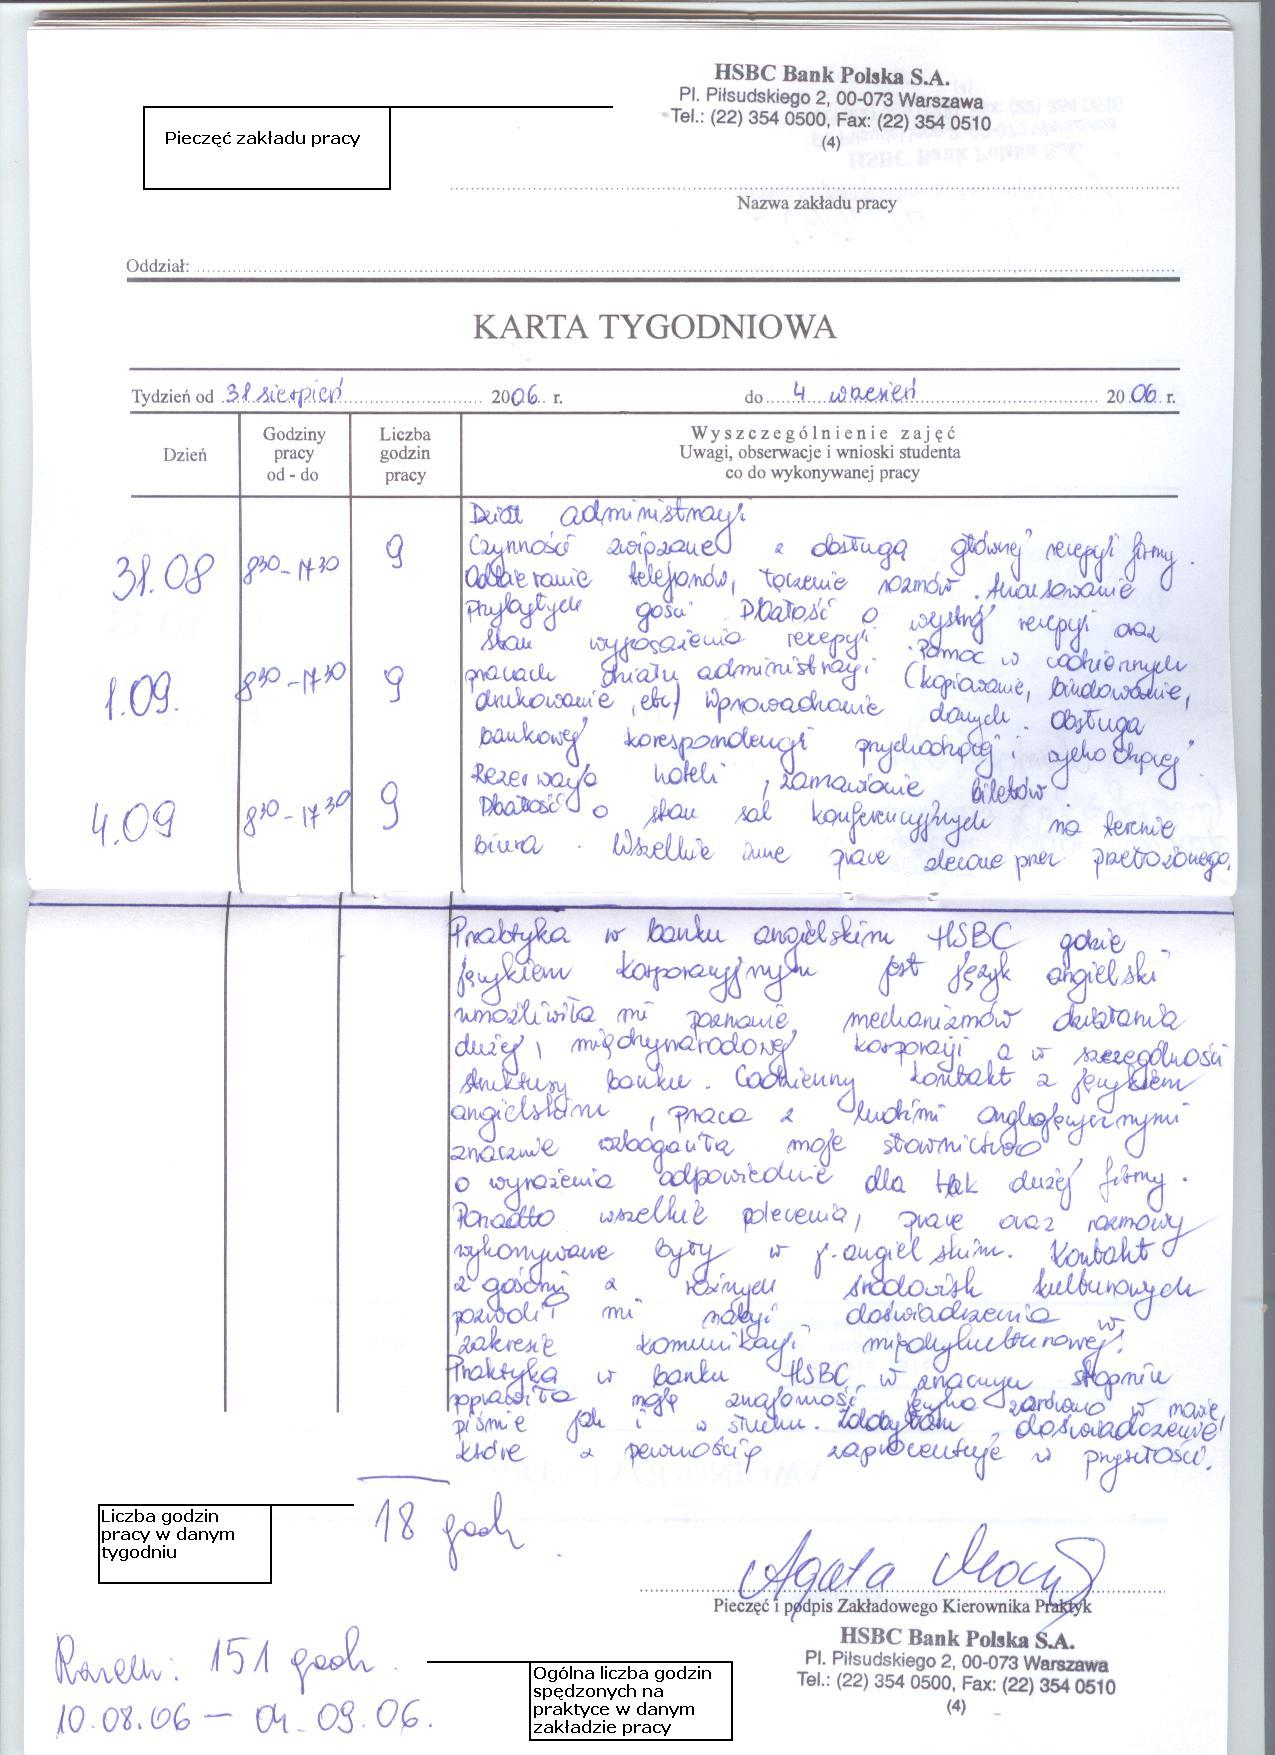 HSBC Bank Polska S.A.
Pl. Piłsudskiego 2, 00-073 Warszawa
Tel.: (22) 354 0500, Fax: (22) 354 0510
(4)
Pieczęć zakładu pracy
Nazwa zakładu pracy
Oddział:
KARTA TYGODNIOWA
Tydzień od 31 sierpień 2006 r. do 4 wrzesień 2006 r.
Dzień
Godziny pracy od - do
Liczba godzin pracy
Wyszczególnienie zajęć
Uwagi, obserwacje i wnioski studenta
co do wykonywanej pracy
31.08 8³⁰-17³⁰ 9
1.09. 8³⁰-17³⁰ 9
4.09 8³⁰-17³⁰ 9
Dział administracji
Czynności związane z obsługą głównej recepcji firmy.
Odbieranie telefonów, łączenie rozmów. Anonsowanie
przybyłych gości. Dbałość o wystrój recepcji oraz
stan wyposażenia recepcji. Pomoc w codziennych
pracach działu administracji (kopiowanie, bindowanie,
drukowanie, etc) Wprowadzanie danych. Obsługa
bankowej korespondencji przychodzącej i wychodzącej
Rezerwacja hoteli, zamawianie biletów
Dbałość o stan sal konferencyjnych na terenie
biura. Wszelkie inne prace zlecone przez przełożonego.
Praktyka w banku angielskim HSBC gdzie
językiem korporacyjnym jest język angielski
umożliwiła mi poznanie mechanizmów działania
dużej, międzynarodowej korporacji a w szczególności
struktury banku. Codzienny kontakt z językiem
angielskim, praca z ludźmi anglojęzycznymi
znacznie wzbogaciła moje słownictwo
o wyrażenia odpowiednie dla tak dużej firmy.
Ponadto wszelkie polecenia, prace oraz rozmowy
wykonywane były w j. angielskim. Kontakt
z gośćmi z różnych środowisk kulturowych
pozwolił mi nabyć doświadczenia w
zakresie komunikacji międzykulturowej.
Praktyka w banku HSBC w znacznym stopniu
poprawiła moją znajomość języka zarówno w mowie,
piśmie jak i w słuchu. Zdobyłam doświadczenie
które z pewnością zaprocentuje w przyszłości.
18 godz
Liczba godzin
pracy w danym
tygodniu
Agata
Pieczęć i podpis Zakładowego Kierownika Praktyk
HSBC Bank Polska S.A.
Pl. Piłsudskiego 2, 00-073 Warszawa
Tel.: (22) 354 0500, Fax: (22) 354 0510
(4)
Razem: 151 godz.
10.08.06 – 04.09.06.
Ogólna liczba godzin
spędzonych na
praktyce w danym
zakładzie pracy